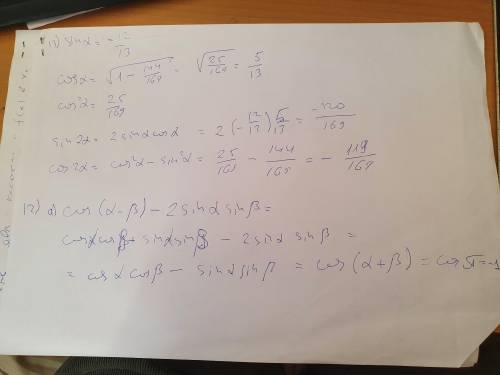 11) sinα = -12/13
cosα = √(1 - 144/169) = √(25/169) = 5/13
cos²α = 25/169
sin2α = 2sinαcosα = 2(-12/13)5/13 = -120/169
cos2α = cos²α - sin²α = 25/169 - 144/169 = - 119/169
12) a) cos(α-β) - 2sinαsinβ =
cosαcosβ + sinαsinβ - 2sinα sinβ =
= cosαcosβ - sinαsinβ = cos(α+β) = cos π = -1